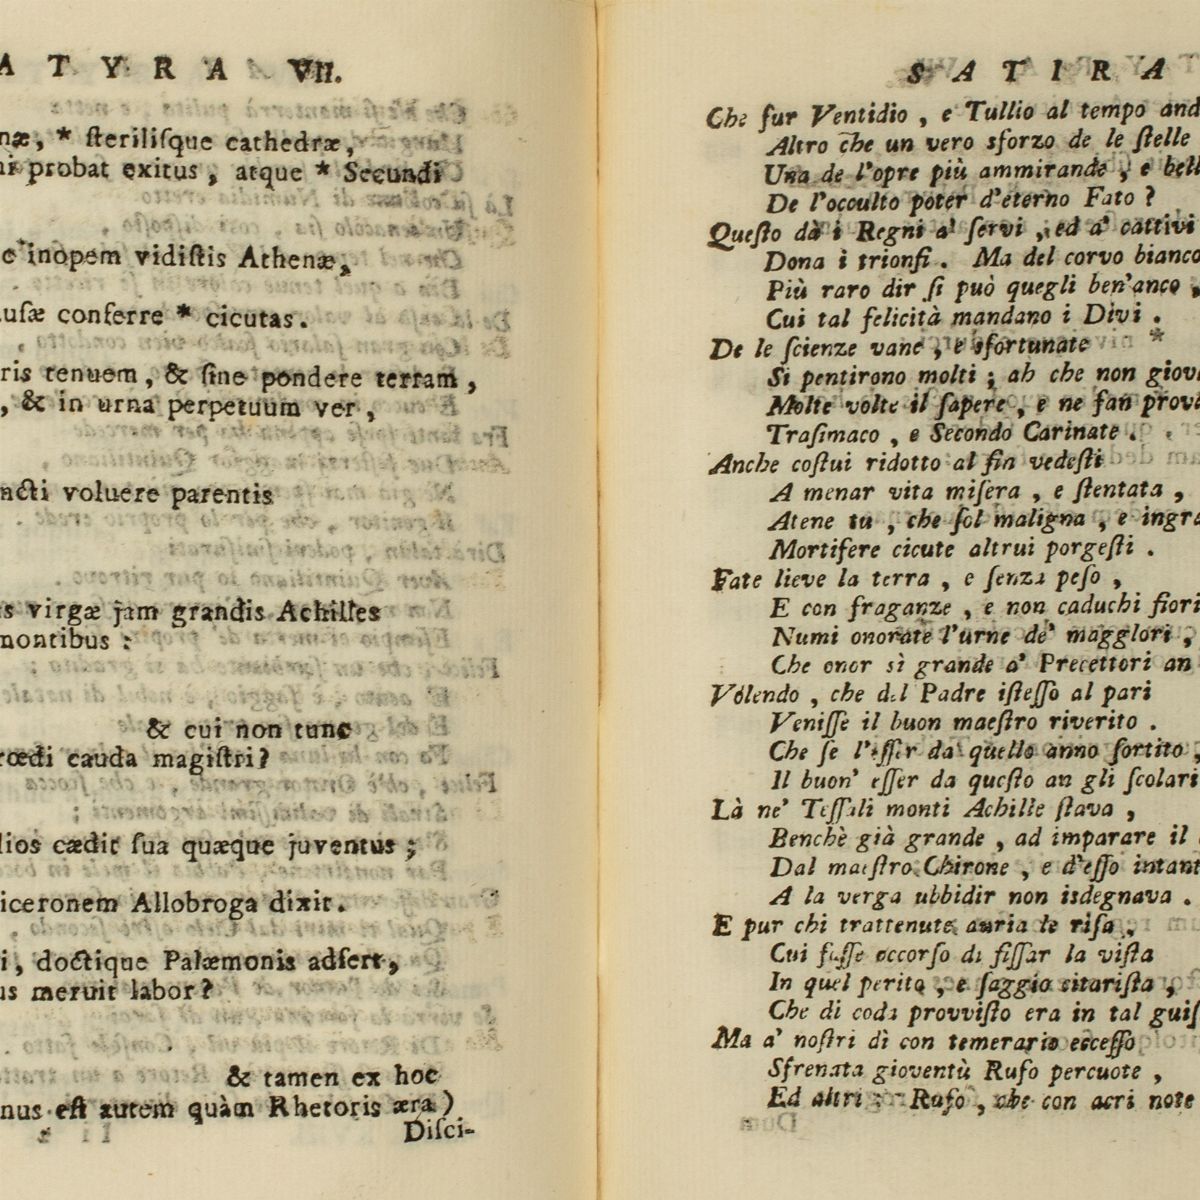 ATYRA VII.
næ, * ſteriliſque cathedræ,
probat exitus, atque * Secundi
inopem vidiſtis Athenæ,
conferre * cicutas.
tenuem, & ſine pondere terram,
, & in urna perpetuum ver,
voluere parentis
virgæ jam grandis Achilles
montibus:
& cui non tunc
cauda magiſtri?
cædit ſua quæque juventus;
iceronem Allobroga dixit.
, doctique Palæmonis adfert,
meruit labor?
& tamen ex hoc
eſt autem quàm Rhetoris æra)
Diſci-
SATIRA
Che fur Ventidio, e Tullio al tempo
Altro che un vero sforzo de le ſtelle
Una de l'opre più ammirande, e
De l'occulto poter d'eterno Fato?
Queſto dà i Regni a' ſervi, ed a' cattivi
Dona i trionfi. Ma del corvo bianco
Più raro dir ſi può quegli ben'anco,
Cui tal felicità mandano i Divi.
De le ſcienze vane, e sfortunate *
Si pentirono molti; ah che non
Molte volte il ſapere, e ne fan
Traſimaco, e Secondo Carinate.
Anche coſtui ridotto al fin vedeſti
A menar vita miſera, e ſtentata,
Atene tu, che ſol maligna, e
Mortifere cicute altrui porgeſti.
Fate lieve la terra, e ſenza peſo,
E con fraganze, e non caduchi fiori
Numi onorate l'urne de' maggiori,
Che onor sì grande a' Precettori an
Volendo, che del Padre iſteſſo al pari
Veniſſe il buon maeſtro riverito.
Che ſe l'eſſer da quello anno ſortito,
Il buon' eſſer da queſto an gli ſcolari
Là ne' Teſſali monti Achille ſtava,
Benchè già grande, ad imparare il
Dal maeſtro Chirone, e d'eſſo
A la verga ubbidir non isdegnava.
E pur chi trattenute auria le riſa,
Cui foſſe occorſo di fiſſar la viſta
In quel perito, e ſaggio citariſta,
Che di coda provviſto era in tal
Ma a' noſtri dì con temerario ecceſſo
Sfrenata gioventù Rufo percuote,
Ed altri Rufo, che con acri note